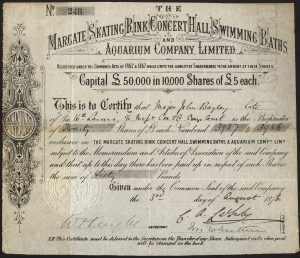 No. 248
THE
MARGATE SKATING RINK CONCERT HALL, SWIMMING BATHS
AND
AQUARIUM COMPANY, LIMITED
REGISTERED UNDER THE COMPANIES ACTS OF 1862 & 1867 WHICH LIMITS THE LIABILITY OF SHAREHOLDERS TO THE AMOUNT OF THEIR SHARES
Capital £50,000 in 10000 Shares of £5 each.
This is to Certify that Major John
of the 16th Lancers, is the Proprietor
of Twenty Shares of £5 each Numbered 3937 to 3956
inclusive in THE MARGATE SKATING RINK CONCERT HALL SWIMMING BATHS & AQUARIUM COMPY. LIMD.
subject to the Memorandum and Articles of Association of the said Company
and that up to this day there has been paid up in respect of such Shares
the sum of Sixty Pounds
Given under the Common Seal of the said Company
the 3rd day of August 1876
N.B. This Certificate must be delivered to the Secretary on the Transfer of any Share. Subsequent calls when paid
will be charged on the back.